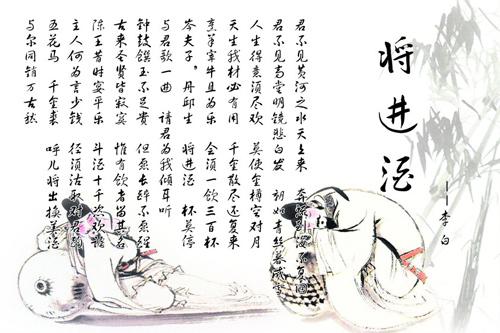 将进酒
——李白
君不见黄河之水天上来 奔流到海不复回
君不见高堂明镜悲白发 朝如青丝暮成雪
人生得意须尽欢 莫使金樽空对月
天生我材必有用 千金散尽还复来
烹羊宰牛且为乐 会须一饮三百杯
岑夫子．丹邱生 将进酒 杯莫停
与君歌一曲 请君为我倾耳听
钟鼓馔玉不足贵 但愿长醉不愿醒
古来圣贤皆寂寞 惟有饮者留其名
陈王昔时宴平乐 斗酒十千恣欢谑
主人何为言少钱 径须沽取对君酌
五花马 千金裘 呼儿将出换美酒
与尔同销万古愁